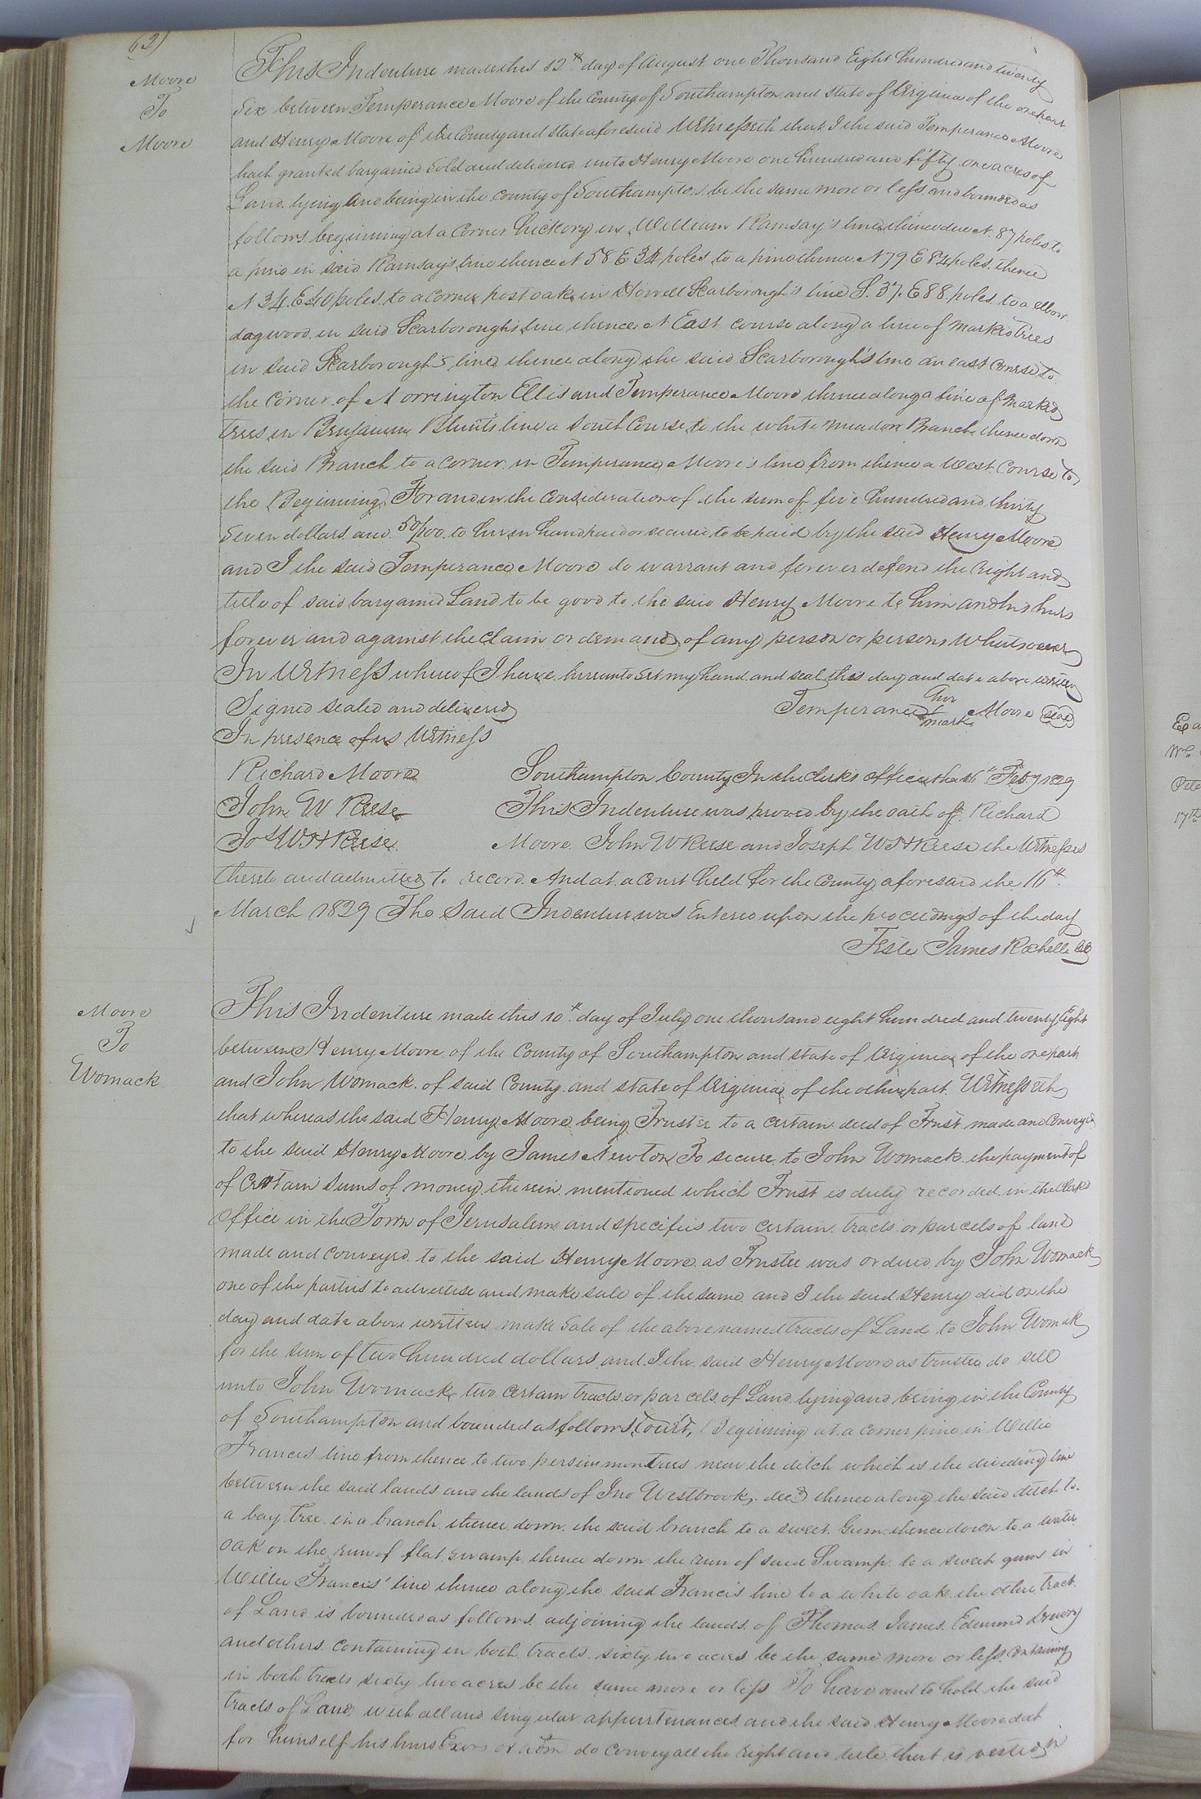 62)
Moore
To
Moore
This Indenture made this 12th day of August one Thousand Eight hundred and twenty
Six between Temperance Moore of the County of Southampton and state of Virginia of the one part
and Henry Moore of the County and state aforesaid Witnesseth that I the said Temperance Moore
hath granted bargained Sold and delivered unto Henry Moore one hundred and fifty one acres of
Land lying and being in the county of Southampton be the same more or less and bounded as
follows beginning at a Corner hickory in William Ramsay's line thence due N. 87 poles to
a pine in said Ramsay's line thence N 58 E 34 poles to a pine thence N 79 E 84 poles thence
N 34 E 40 poles to a corner post oak in Howell Scarborough's line S. 37. E 88 poles to a
dogwood in said Scarborough's line thence N East course along a line of marked trees
in said Scarborough's line thence along the said Scarborough's line an east course to
the corner of Norrington Ellis and Temperance Moore thence along a line of marked
trees in Benjamin Blunt's line a South Course to the white meadow Branch thence down
the said Branch to a corner in Temperance Moore's line from thence a West Course to
the Beginning For and in the consideration of the sum of five hundred and thirty
Seven dollars and 50/100 to her in hand paid or secured to be paid by the said Henry Moore
and I the said Temperance Moore do warrant and forever defend the right and
title of said bargained Land to be good to the said Henry Moore to him and his heirs
forever and against the claim or demand of any person or persons Whatsoever
In Witness whereof I have hereunto set my hand and seal this day and date above written
Signed sealed and delivered Temperance her mark Moore seal
In presence of us Witness
Richard Moore Southampton County In the Clerk's office the 16th Feby 1829
John W Reese This Indenture was proved by the oath of Richard
Jos W H Reese Moore John W Reese and Joseph W H Reese the Witnesses
thereto and admitted to record And at a Court held for the County aforesaid the 16th
March 1829 The Said Indenture was Entered upon the proceedings of the day
Teste James Rochelle Clk
Moore
To
Womack
This Indenture made this 10th day of July one thousand eight hundred and twenty Eight
between Henry Moore of the County of Southampton and state of Virginia of the one part
and John Womack of said County and state of Virginia of the other part Witnesseth
that whereas the said Henry Moore being Trustee to a certain deed of Trust made and Conveyed
to the said Henry Moore by James Newton To secure to John Womack the payment of
of Certain Sums of money therein mentioned which Trust is duly recorded in the Clerks
Office in the Town of Jerusalem and specifies two certain tracts or parcels of land
made and conveyed to the said Henry Moore as Trustee was ordered by John Womack
one of the parties to advertise and make sale of the same and I the said Henry did on the
day and date above written make Sale of the above named tracts of Land to John Womack
for the sum of two hundred dollars and I the said Henry Moore as trustee do sell
unto John Womack two certain tracts or parcels of Land lying and being in the County
of Southampton and bounded as follows towit, Beginning at a corner pine in Willie
Francis line from thence to two persimmon trees near the ditch which is the dividing line
between the said lands and the lands of Jno Westbrook, decd thence along the said ditch to
a bay tree in a branch thence down the said branch to a sweet Gum thence down to a water
oak on the run of flat swamp thence down the run of said Swamp to a sweet gum in
Willie Francis' line thence along the said Francis line to a white oak the other tract
of Land is bounded as follows adjoining the lands of Thomas James Edmund Drewry
and others containing in both tracts sixty two acres be the same more or less containing
in both tracts sixty two acres be the same more or less To have and to hold the said
tracts of Land with all and singular appurtenances and the said Henry Moore doth
for himself his heirs Exors or adm do convey all the right and title that is vested in